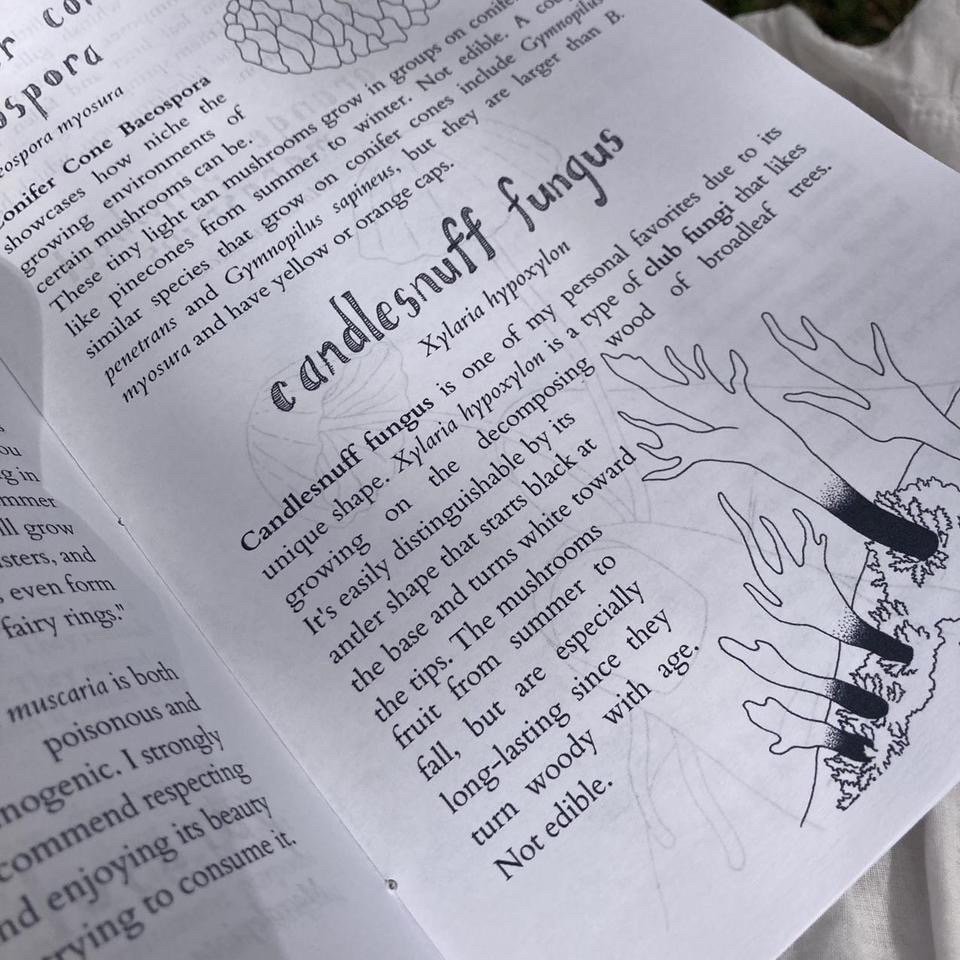 ospora
myosura
Conifer Cone Baeospora
showcases how niche the
growing environments of
certain mushrooms can be.
These tiny light tan mushrooms grow in groups on
like pinecones from summer to winter. Not edible. A
similar species that grow on conifer cones include Gymnopilus
penetrans and Gymnopilus sapineus, but they are larger than B.
myosura and have yellow or orange caps.
candlesnuff fungus
Xylaria hypoxylon
Candlesnuff fungus is one of my personal favorites due to its
unique shape. Xylaria hypoxylon is a type of club fungi that likes
growing on the decomposing wood of broadleaf trees.
It's easily distinguishable by its
antler shape that starts black at
the base and turns white toward
the tips. The mushrooms
fruit from summer to
fall, but are especially
long-lasting since they
turn woody with age.
Not edible.
ou
g in
mmer
ill grow
sters, and
even form
fairy rings."
muscaria is both
poisonous and
nogenic. I strongly
commend respecting
nd enjoying its beauty
trying to consume it.